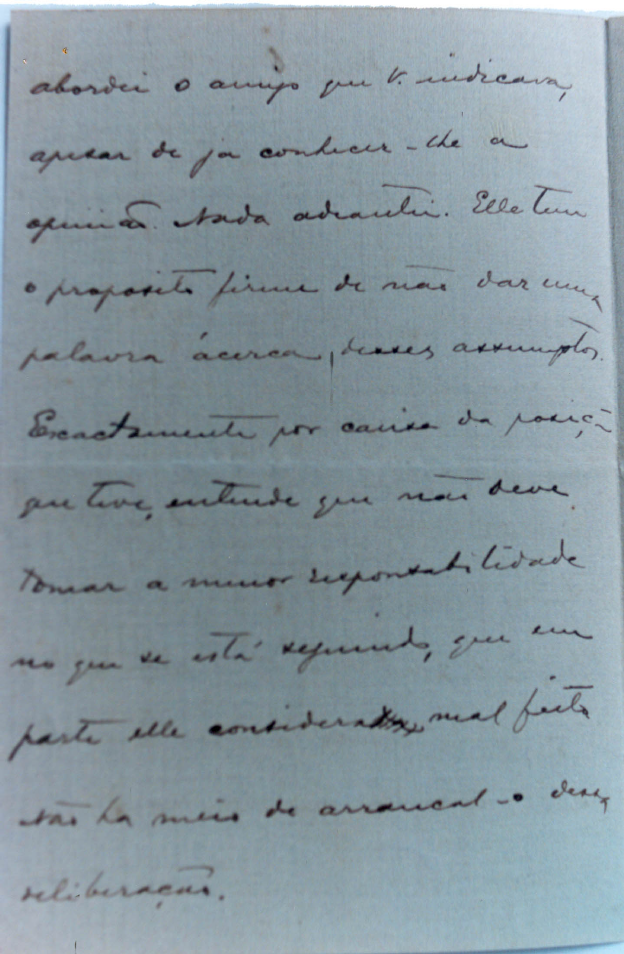 abordei o amigo que V. indicava,
apesar de ja conhecer-lhe a
opinião. Nada adiantei. Elle tem
o proposito firme de não dar uma
palavra ácerca desses assumptos.
Exactamente por causa da posição
que teve, entende que não deve
tomar a menor responsabilidade
no que se está seguindo, que em
parte elle considera mal feito
Não ha meio de arrancal-o dessa
deliberação.